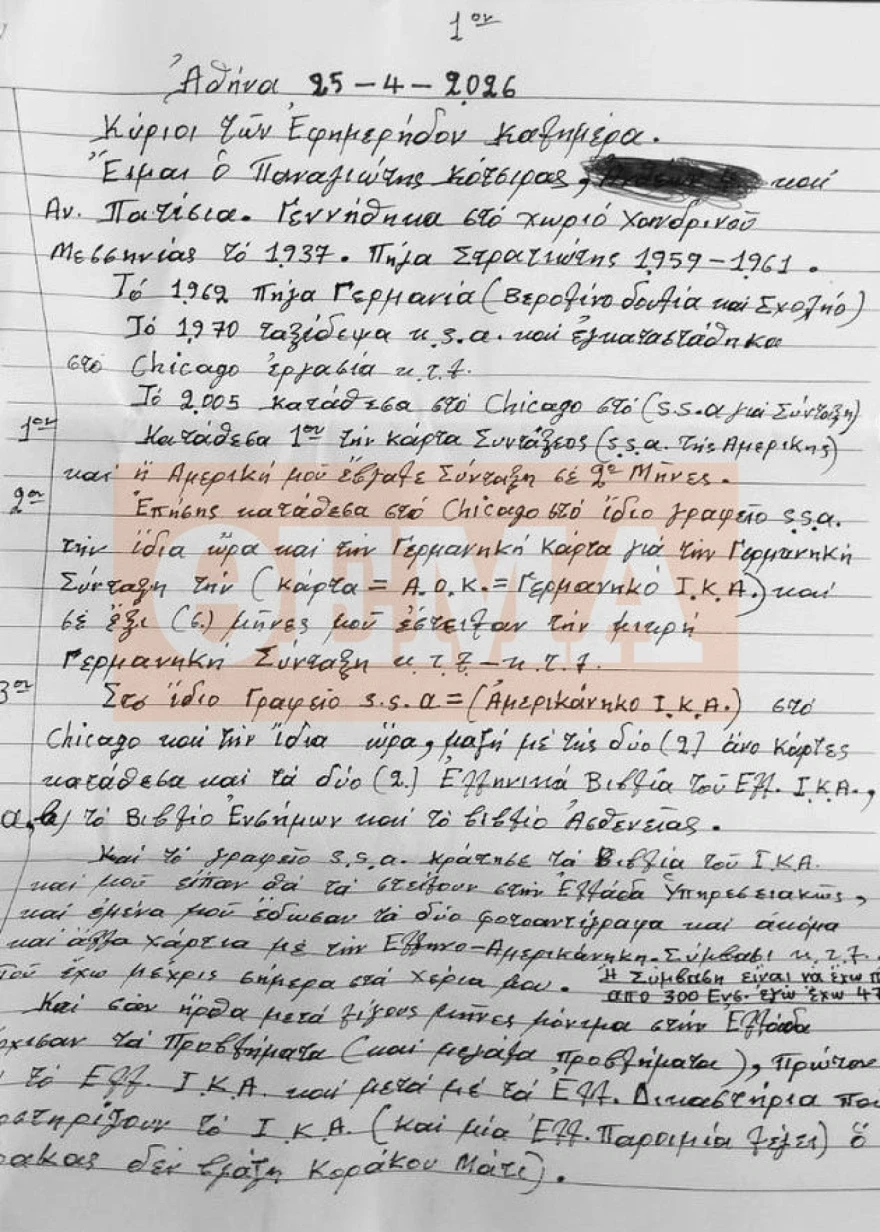 1ον
Ἀθήνα 25-4-2026
Κύριοι τῶν Ἐφημερήδον καλημέρα.
Ἔιμαι ὁ Παναγιώτης Κότσιρας, και
Αν. Πατίσια. Γεννήθηκα στό χωριό Χανδρινοῦ
Μεσσηνίας τό 1937. Πήγα Στρατιώτης 1959-1961.
Τό 1962 πήγα Γερμανία (Βερολίνο δουλία και Σχολήο)
Τό 1970 ταξίδεψα u.s.a. και ἐγκαταστάθηκα
στό Chicago ἐργασία κ.τ.λ.
Τό 2005 κατάθεσα στό Chicago στό (s.s.a γιά Σύνταξη)
1ον Κατάθεσα 1ον τήν κάρτα Συντάξεος (s.s.a. τῆς Αμερικης)
και ἡ Αμερική μοῦ ἔβγαλε Σύνταξη σέ 2ο Μῆνες.
2ον Ἐπήσης κατάθεσα στό Chicago στό ἴδιο γραφεῖο s.s.a.
τήν ἴδια ὥρα και τήν Γερμανηκή Κάρτα γιά τήν Γερμανηκή
Σύνταξη τήν (κάρτα = A.O.K. = Γερμανηκό Ι.Κ.Α.) και
σέ ἔξι (6.) μῆνες μοῦ ἔστειλαν τήν μικρή
Γερμανηκή Σύνταξη κ.τ.λ-κ.τ.λ.
3ον Στο ἴδιο Γραφείο s.s.a = (Ἀμερικάνηκο Ι.Κ.Α.) στό
Chicago και τήν ἴδια ὥρα, μαζή μέ τής δύο (2) ἄνο κάρτες
κατάθεσα και τά δύο (2.) Ἑλληνικά Βιβλία τοῦ Ελλ. Ι.Κ.Α.,
α,β) τό Βιβλίο Ἐνσήμων και τό βιβλίο Ἀσθενείας.
Και τό γραφείο s.s.a. κράτησε τά Βιβλία τοῦ Ι.Κ.Α.
και μοῦ εἶπαν θά τά στείλουν στήν Ἑλλάδα Ὑπηρεσειακῶς,
και ἐμένα μοῦ ἔδωσαν τά δύο φοτοαντίγραφα και ἀκόμα
και ἄλλα χάρτια μέ τήν Ελληνο-Αμερικάνηκη.Σύμβασι κ.τ.λ.
Ποῦ ἔχω μέχρις σήμερα στά χέρια μου. Ἡ Σύμβαση είναι νά έχω
από 300 Ενσ. εγώ έχω 47
Και σάν ἦρθα μετά λίγους μῆνες μόνιμα στήν Ἑλλάδα
ρχισαν τά Προβλήματα (και μεγάλα προβλήματα), Πρώτον
τό Ελλ. Ι.Κ.Α. και μετά μέ τά Ἑλλ. Δικαστήρια που
οστηρίζουν τό Ι.Κ.Α. (και μία Ἑλλ. Παροιμία λέγει) ὁ
ρακας δέν βγάζη Κοράκου Μάτι).
ΘΕΜΑ